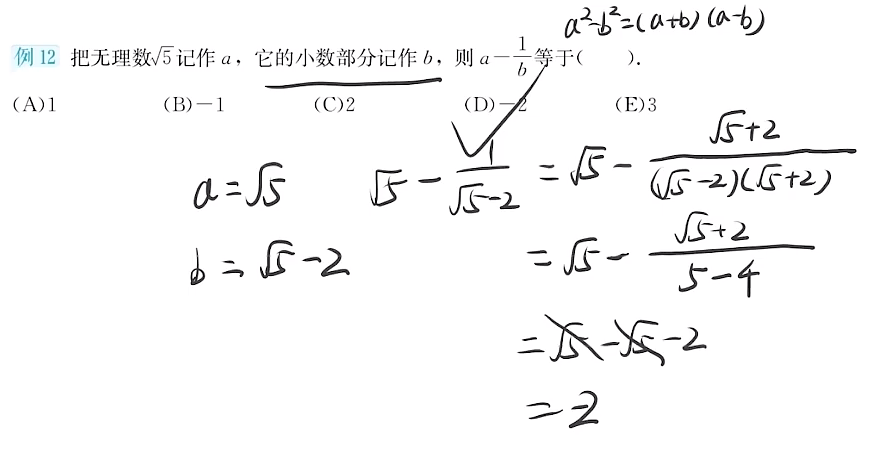 a²-b²=(a+b)(a-b)
例12 把无理数√5记作a，它的小数部分记作b，则a-1/b等于(  ).
(A)1 (B)-1 (C)2 (D)-2 (E)3
a=√5 √5-1/(√5-2) =√5-(√5+2)/((√5-2)(√5+2))
b=√5-2 =√5-(√5+2)/(5-4)
=√5-√5-2
=-2